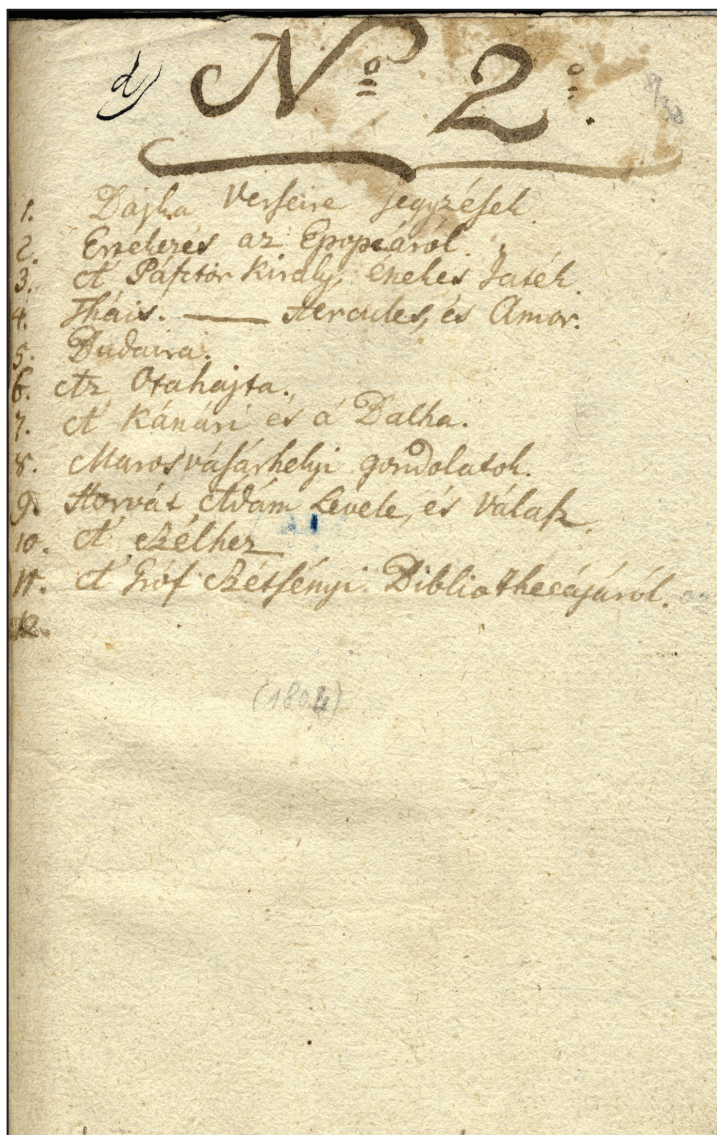 d) No 2o.
8/38
1. Dajka Verseire jegyzések.
2. Ertekezés az Epopeáról.
3. A' Pásztor Király, énekes Játék.
4. Tháis. — Hercules, és Amor.
5. Dudaira.
6. Az Otahajta.
7. A' Kánári és a' Dalha.
8. Marosvásárhelyi gondolatok.
9. Horvát Ádám Levele, és Válasz.
10. A' Szélhez
11. A' Gróf Szétsényi Bibliothecájáról.
12.
(1804)